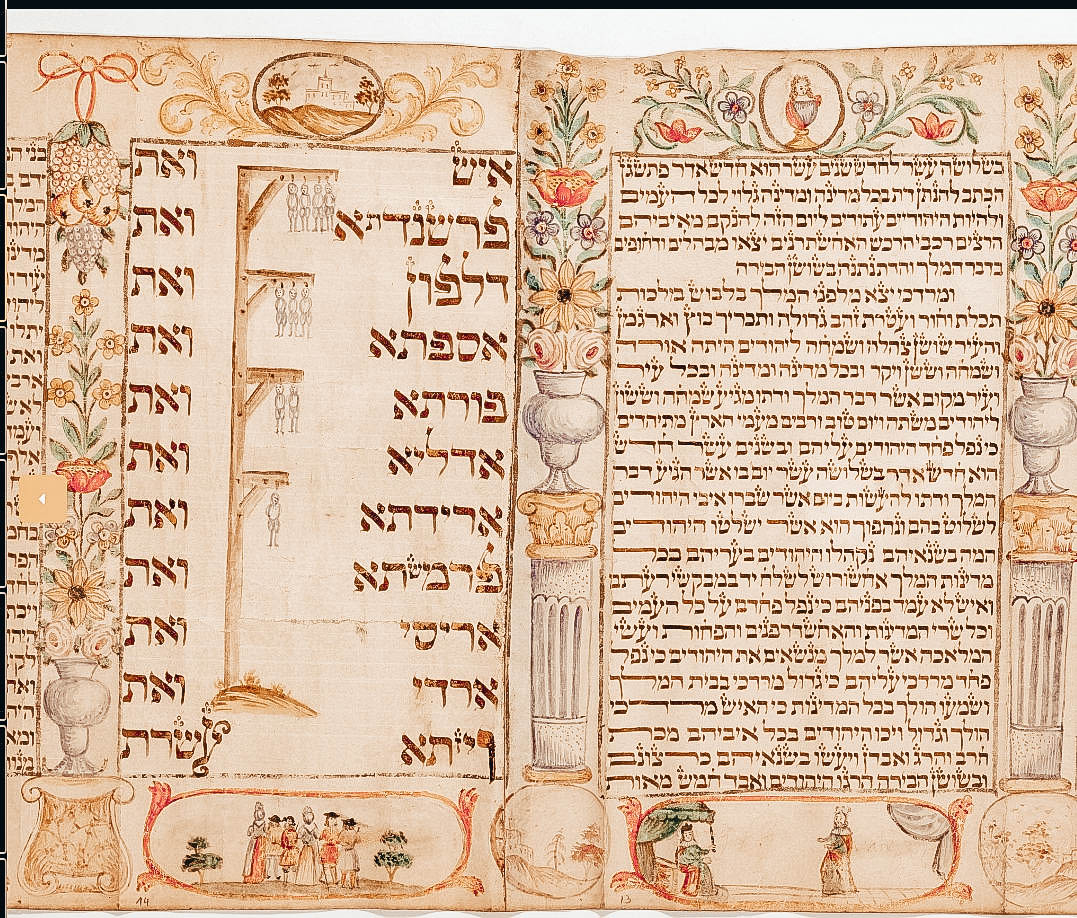 בשלושה עשר לחדש שנים עשר הוא חדש אדר פתשגן
הכתב להנתן דת בכל מדינה ומדינה גלוי לכל העמים
ולהיות היהודיים עתודים ליום הזה להנקם מאיביהם
הרצים רכבי הרכש האחשתרנים יצאו מבהלים ודחופים
בדבר המלך והדת נתנה בשושן הבירה
ומרדכי יצא מלפני המלך בלבוש מלכות
תכלת וחור ועטרת זהב גדולה ותכריך בוץ וארגמן
והעיר שושן צהלה ושמחה ליהודים היתה אורה
ושמחה וששן ויקר ובכל מדינה ומדינה ובכל עיר
ועיר מקום אשר דבר המלך ודתו מגיע שמחה וששון
ליהודים משתה ויום טוב ורבים מעמי הארץ מתיהדים
כי נפל פחד היהודים עליהם ובשנים עשר חדש
הוא חדש אדר בשלושה עשר יום בו אשר הגיע דבר
המלך ודתו להעשות ביום אשר שברו איבי היהודים
לשלוט בהם ונהפוך הוא אשר ישלטו היהודים
המה בשנאיהם נקהלו היהודים בעריהם בכל
מדינות המלך אחשורוש לשלח יד במבקשי רעתם
ואיש לא עמד בפניהם כי נפל פחדם על כל העמים
וכל שרי המדינות והאחשדרפנים והפחות ועשי
המלאכה אשר למלך מנשאים את היהודים כי נפל
פחד מרדכי עליהם כי גדול מרדכי בבית המלך
ושמעו הולך בכל המדינות כי האיש מרדכי
הולך וגדול ויכו היהודים בכל איביהם מכת
חרב והרג ואבדן ויעשו בשנאיהם כרצונם
ובשושן הבירה הרגו היהודים ואבד חמש מאות
13
איש ואת
פרשנדתא ואת
דלפון ואת
אספתא ואת
פורתא ואת
אדליא ואת
ארידתא ואת
פרמשתא ואת
אריסי ואת
ארדי ואת
ויזתא עשרת
14